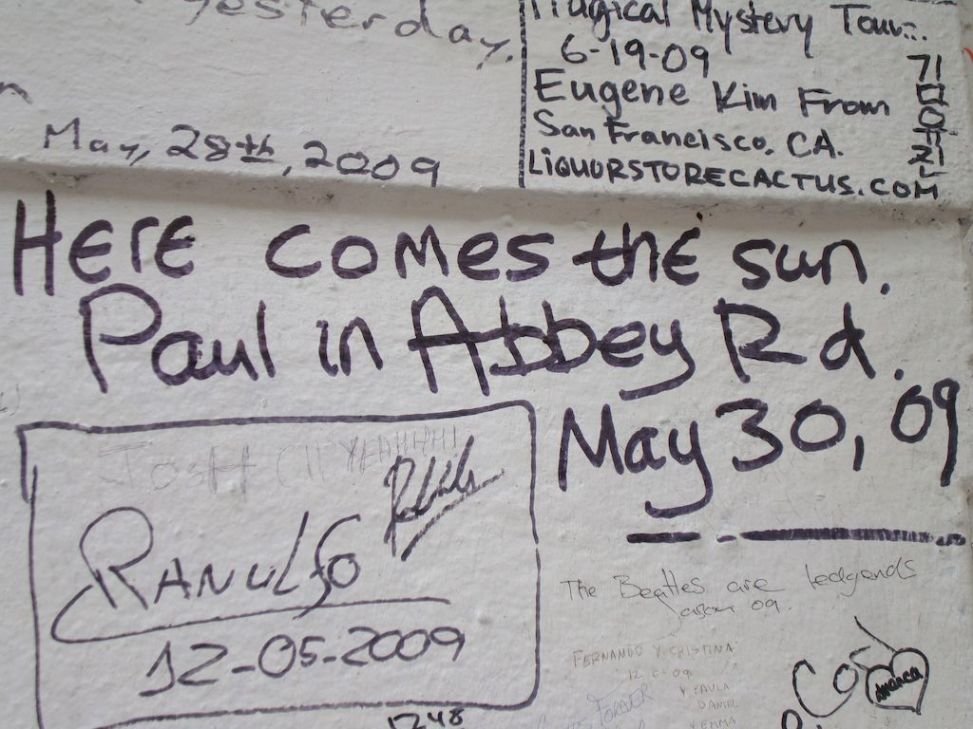 yesterday.
May, 28th, 2009
Magical Mystery Tour...
6-19-09
Eugene Kim From
San Francisco, CA.
LIQUORSTORECACTUS.COM
HERE COMES THE SUN.
Paul in Abbey Rd.
May 30, 09
JOSH
YEAHHHH!
RANULFO
12-05-2009
The Beatles are ledgends
09.
FERNANDO Y CHISTINA
Y PAULA
DANIEL
Y EMMA
FOREVER
1248